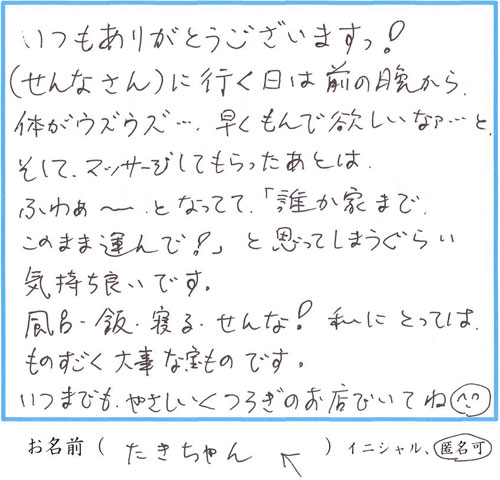 いつもありがとうございますっ!
(せんなさん)に行く日は前の晩から、
体がウズウズ…、早くもんで欲しいなァ…と、
そして、マッサージしてもらったあとは、
ふわぁ〜、となってて、「誰か家まで、
このまま運んで!」と思ってしまうぐらい
気持ち良いです。
風呂・飯・寝る・せんな! 私にとっては、
ものすごく大事な宝ものです。
いつまでも、やさしいくつろぎのお店でいてね
お名前( たきちゃん ) イニシャル、匿名可